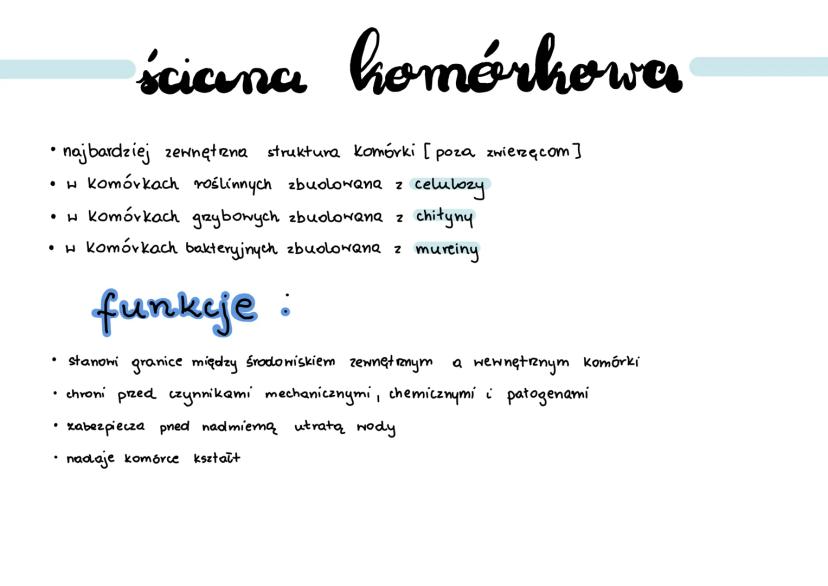 ściana komórkowa
• najbardziej zewnętrzna struktura komórki [poza zwierzęcom]
• w komórkach roślinnych zbudowana z celulozy
• w komórkach grzybowych zbudowana z chityny
• w komórkach bakteryjnych zbudowana z mureiny
funkcje:
• stanowi granice między środowiskiem zewnętrznym a wewnętrznym komórki
• chroni przed czynnikami mechanicznymi, chemicznymi i patogenami
• zabezpiecza przed nadmierną utratą wody
• nadaje komórce kształt